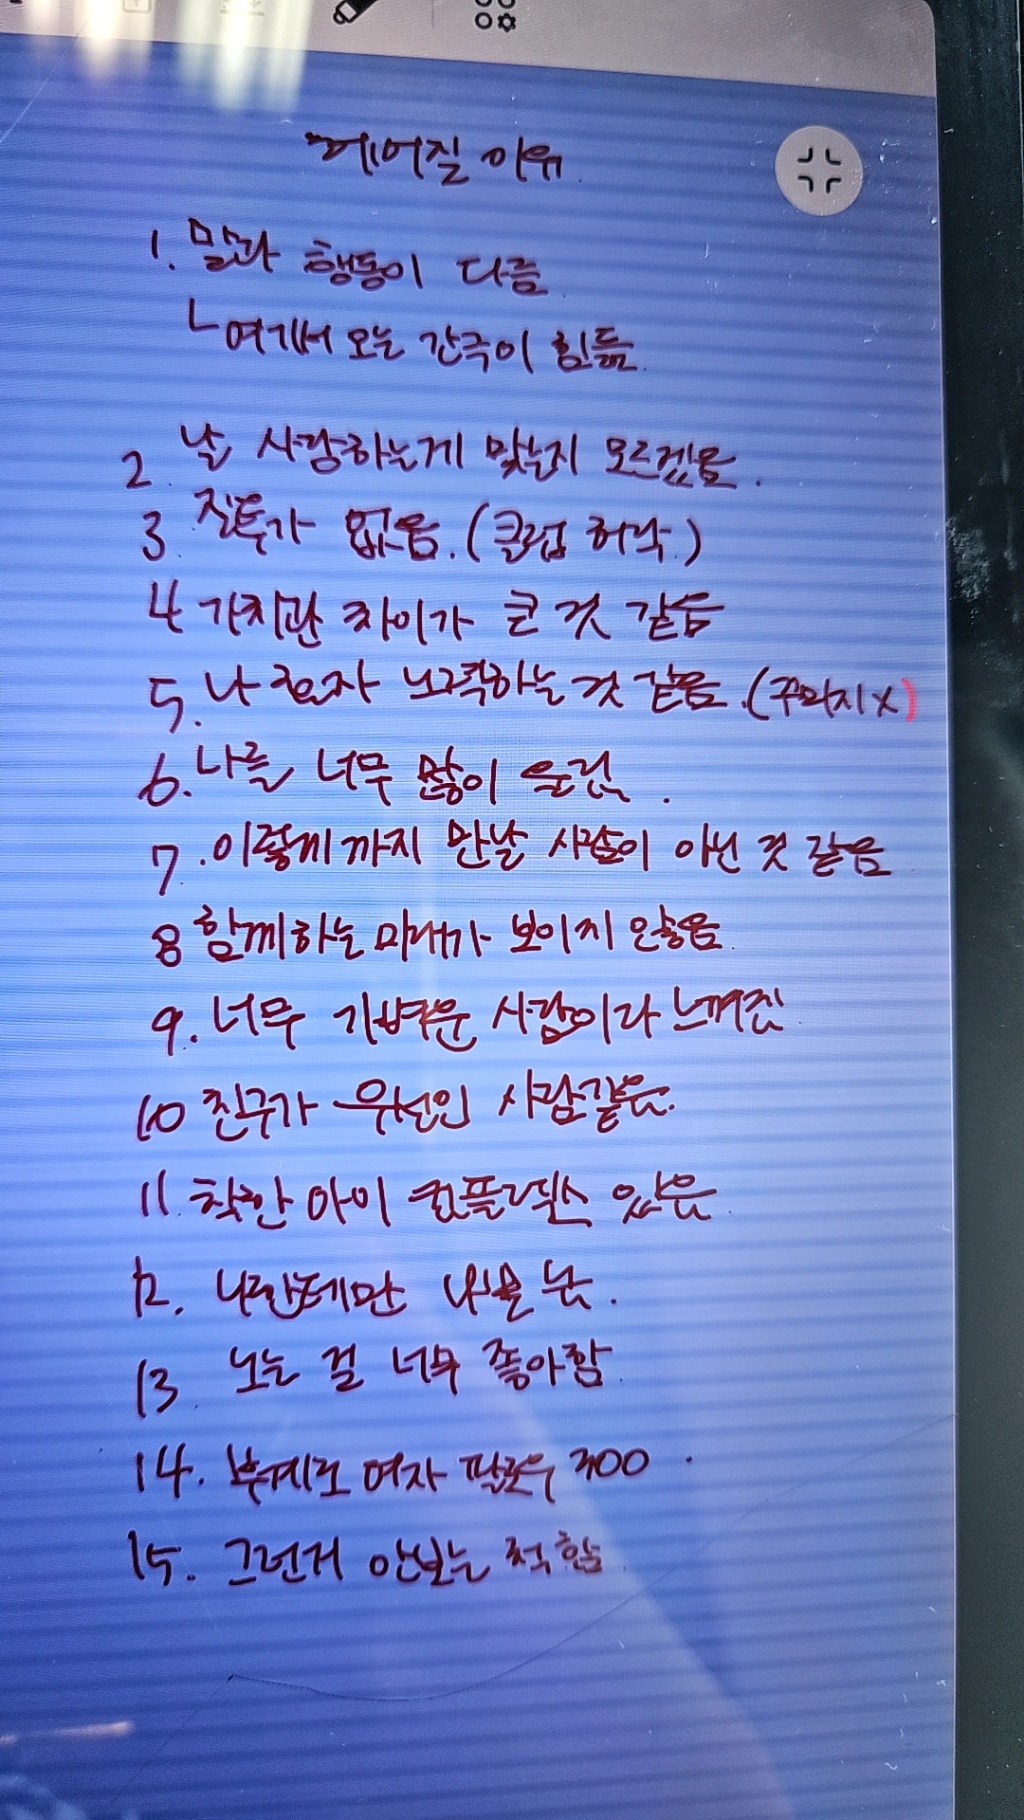 헤어질 이유
1. 말과 행동이 다름
ㄴ여기서 오는 간극이 힘듦
2. 날 사랑하는게 맞는지 모르겠음.
3. 질투가 없음. (클럽 허락)
4 가치관 차이가 큰 것 같음
5. 나 혼자 노력하는 것 같음. (꾸미지X)
6. 나를 너무 많이 울림.
7. 이렇게까지 만날 사람이 아닌 것 같음
8 함께하는 미래가 보이지 않음
9. 너무 가벼운 사람이라 느껴짐
10 친구가 우선인 사람같음.
11. 착한 아이 컴플렉스 있음
12. 나한테만 날
13 노는 걸 너무 좋아함
14. 부계로 여자 팔로우 300
15. 그런거 안보는 척 함